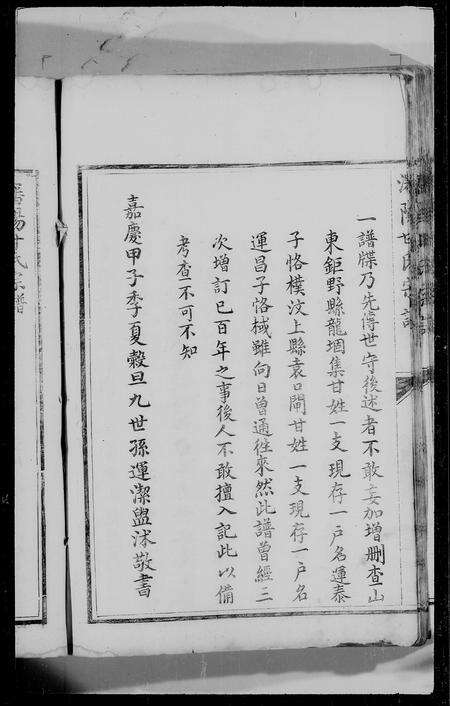 一譜牒乃先傳世守後述者不敢妄加增删查山
東鉅野縣龍堌集甘姓一支現存一户名運泰
子恪樸汶上縣袁口閘甘姓一支現存一户名
運昌子恪棫雖向日曾通徃來然此譜曾經三
次增訂已百年之事後人不敢擅入記此以備
考查不可不知
嘉慶甲子季夏穀旦九世孫運潔盥沐敬書
瀋陽甘氏宗譜